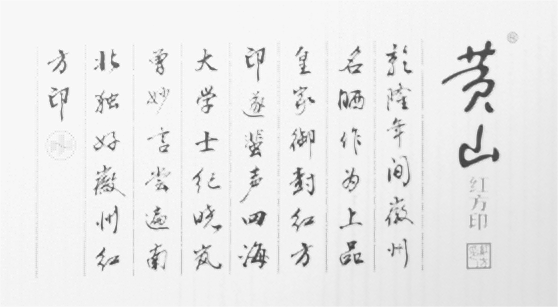 黄山
红方印
乾隆年间徽州
名晒作为上品
皇家御封红方
印遂蜚声四海
大学士纪晓岚
曾妙言尝遍南
北独好徽州红
方印